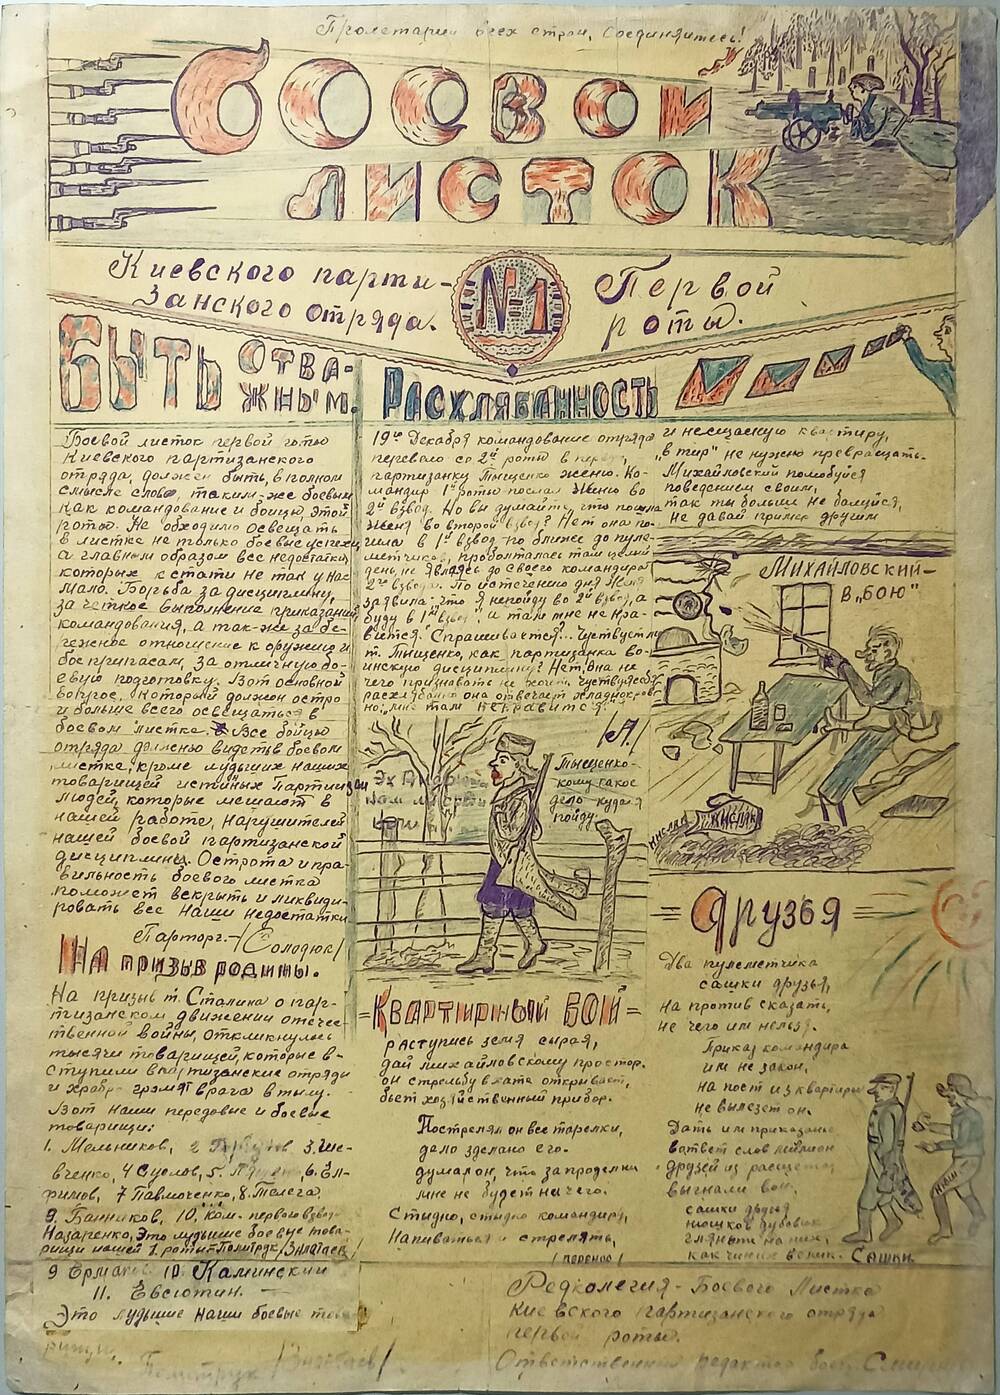 Пролетарии всех стран, соединяйтесь!
БОЕВОЙ
ЛИСТОК
Киевского парти-
занского отряда.
№1
Первой
роты.
БЫТЬ ОТВА-
ЖНЫМ.
Боевой листок первой роты
Киевского партизанского
отряда, должен быть, в полном
смысле слова, таким-же боевым
как командование и бойцы, этой
роты. Не обходимо освещать
в листке не только боевые успехи
а главным образом все недостатки
которых кстати не так у нас
мало. Борьба за дисциплину,
за четкое выполнение приказаний
командования, а так-же за бе-
режное отношение к оружию и
боеприпасам, за отличную бо-
евую подготовку. Вот основной
вопрос, который должен остро
и больше всего освещаться в
боевом листке. Все бойцы
отряда должны видеть в боевом
листке, кроме лучших наших
товарищей истиных Партизан
людей, которые мешают в
нашей работе, нарушителей
нашей боевой партизанской
дисциплины. Острота и пра-
вильность боевого листка
поможет вскрыть и ликвиди-
ровать все наши недостатки
Парторг-/Солодюк/
НА ПРИЗЫВ РОДИНЫ.
На призыв т. Сталина о пар-
тизанском движении отече-
ственной войны, откликнулись
тысячи товарищей, которые в-
ступили в партизанские отряды
и храбро громят врага в тылу.
Вот наши передовые и боевые
товарищи:
1. Мельников, 2 3. Ше-
вченко, 4 5. 6. Ел-
фимов, 7 Павлюченко, 8. Телега.
9. Банников, 10. Ком. первого взвода
Назаренко. Это лудьшие боевые това-
рищи нашей 1 роты-Политрук /Знатаев/
9 Ермаков 10. Каминский
11. Евсютин.
Это лудьшие наши боевые това
рищи.
Политрук /Знатаев/
РАСХЛЯБАННОСТЬ
19го Декабря командование отряда
перевело со 2й роты в первую,
партизанку Тыщенко Женю. Ко-
мандир 1й роты послал Женю во
2й взвод. Но вы думаите, что пошла
Женя во второй взвод? Нет она по-
шла в 1й взвод по ближе до пуле-
метчиков, проболталась там целый
день, не являясь до своего командира
2го взвода. По истечению дня Женя
заявила: что я непойду во 2й взвод, а
буду в 1м взводе, а там мне не нра-
вится. Спрашивается... Чувствует ли
т. Тыщенко, как партизанка во-
инскую дисциплину? Нет, Она не
чего признавать не хочит. Чувствуя себя
расхлябано она отвечает хладнокров-
но, „мне там не нравится."
/А./
и несщасную квартиру,
„в тир" не нужно превращать-
Михайловский полюбуйся
поведением своим,
так ты больши не балуйся,
не давай пример другим
Михайловский-
в „бою"
кислица
кислица
Эх
Тыщенко-
кому какое
дело куда я
пойду
=КВАРТИРНЫЙ БОЙ=
раступись земя сырая,
дай михайловскому простор.
он стрельбу в хате открывает,
бьет хозяйственный прибор.
Пострелял он все тарелки,
дело зделано его-
думал он, что за проделки
мне не будет ни чего.
Стыдно, стыдно командиру,
Напиваться и стрелять,
/перенос/
=Друзья=
Два пулеметчика
сашки друзья,
На против сказать,
не чего им нельзя.
Приказ командира
им не закон,
на пост из квартиры
не вылезет он.
Дать им приказание
в ответ слов миллион
друзей из расщета
выгнали вон.
сашки друзья
нюшкой
гляньте на них,
как чиник веник.
Нюшка
Сашки
Редколегия-Боевого Листка
Киевского партизанского отряда
первой роты.
Ответственный редактор боец